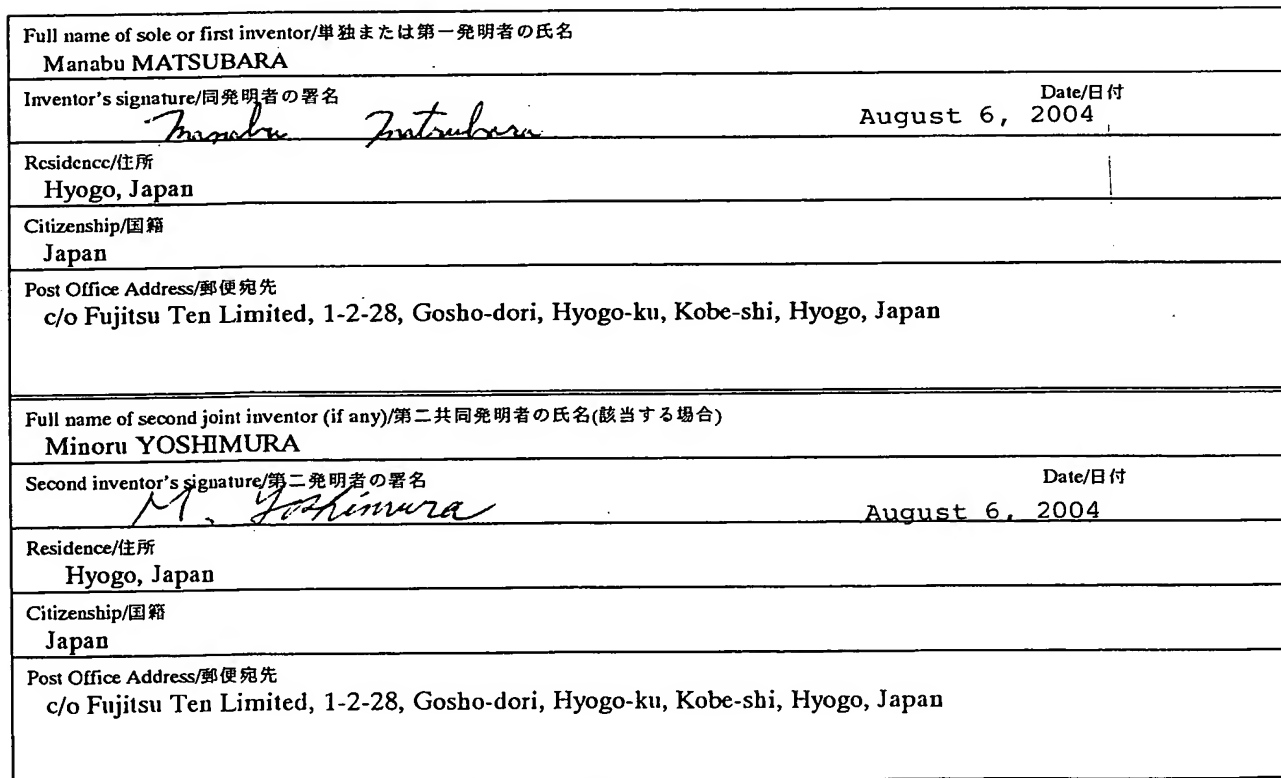 Full name of sole or first inventor/単独または第一発明者の氏名
Manabu MATSUBARA
Inventor's signature/同発明者の署名 Date/日付
Manabu Matsubara August 6, 2004
Residence/住所
Hyogo, Japan
Citizenship/国籍
Japan
Post Office Address/郵便宛先
c/o Fujitsu Ten Limited, 1-2-28, Gosho-dori, Hyogo-ku, Kobe-shi, Hyogo, Japan
Full name of second joint inventor (if any)/第二共同発明者の氏名(該当する場合)
Minoru YOSHIMURA
Second inventor's signature/第二発明者の署名 Date/日付
M. Yoshimura August 6, 2004
Residence/住所
Hyogo, Japan
Citizenship/国籍
Japan
Post Office Address/郵便宛先
c/o Fujitsu Ten Limited, 1-2-28, Gosho-dori, Hyogo-ku, Kobe-shi, Hyogo, Japan